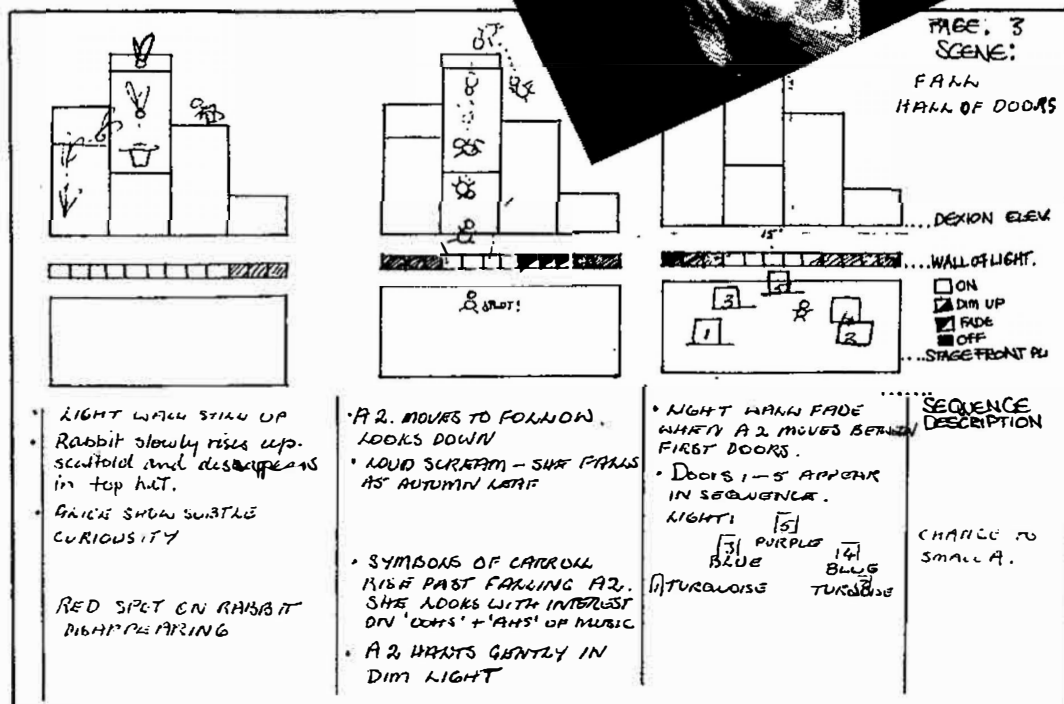 PAGE: 3
SCENE:
FALL
HALL OF DOORS
SPOT!
15'
3
5
1
2
DEXION ELEV.
WALL OF LIGHT.
ON
DIM UP
FADE
OFF
STAGE FRONT
SEQUENCE
DESCRIPTION
• LIGHT WALL STILL UP
• Rabbit slowly rises up
scaffold and disappears
in top hat.
• ALICE SHOW SUBTLE
CURIOUSITY
RED SPOT ON RABBIT
DISAPPEARING
• A2. MOVES TO FOLLOW.
LOOKS DOWN
• LOUD SCREAM – SHE FALLS
AS AUTUMN LEAF
• SYMBOLS OF CARROLL
RISE PAST FALLING A2.
SHE LOOKS WITH INTEREST
ON 'OOHS' + 'AHS' OF MUSIC
• A2 HALTS GENTLY IN
DIM LIGHT
• LIGHT WALL FADE
WHEN A2 MOVES
FIRST DOORS.
• DOORS 1–5 APPEAR
IN SEQUENCE.
LIGHT:
5
PURPLE
3
BLUE
4
BLUE
TURQUOISE
TURQUOISE
CHANGE TO
SMALL A.